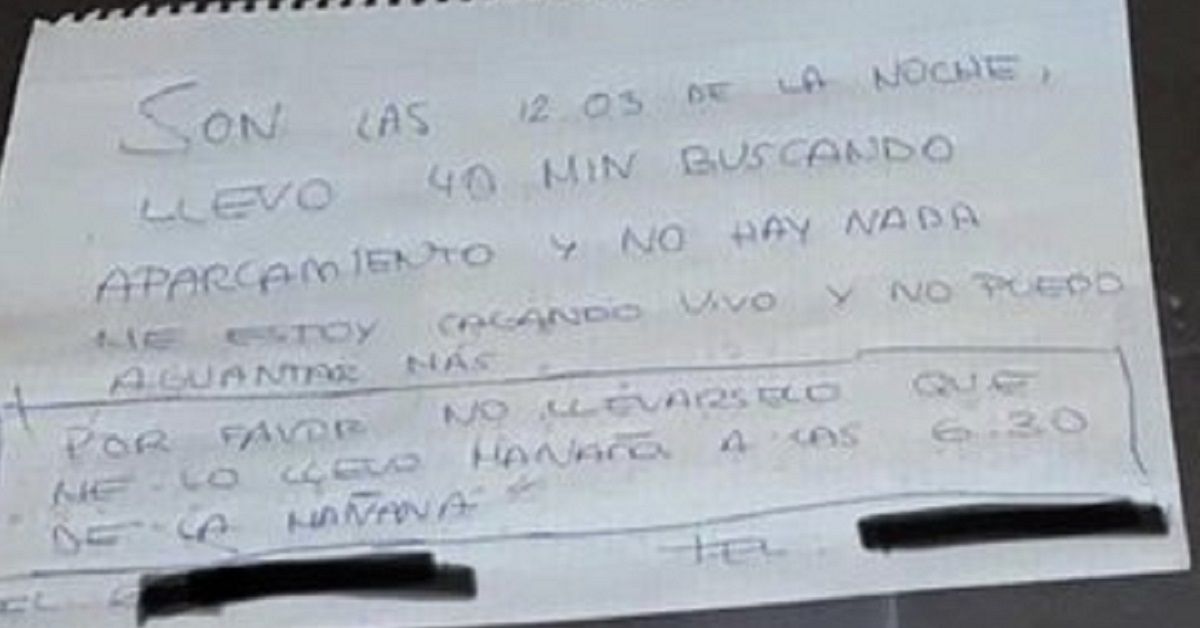 SON LAS 12.03 DE LA NOCHE,
LLEVO 40 MIN BUSCANDO
APARCAMIENTO Y NO HAY NADA
ME ESTOY CAGANDO VIVO Y NO PUEDO
AGUANTAR MÁS.
POR FAVOR NO LLEVÁRSELO QUE
ME LO LLEVO MAÑANA A LAS 6:30
DE LA MAÑANA
TEL.